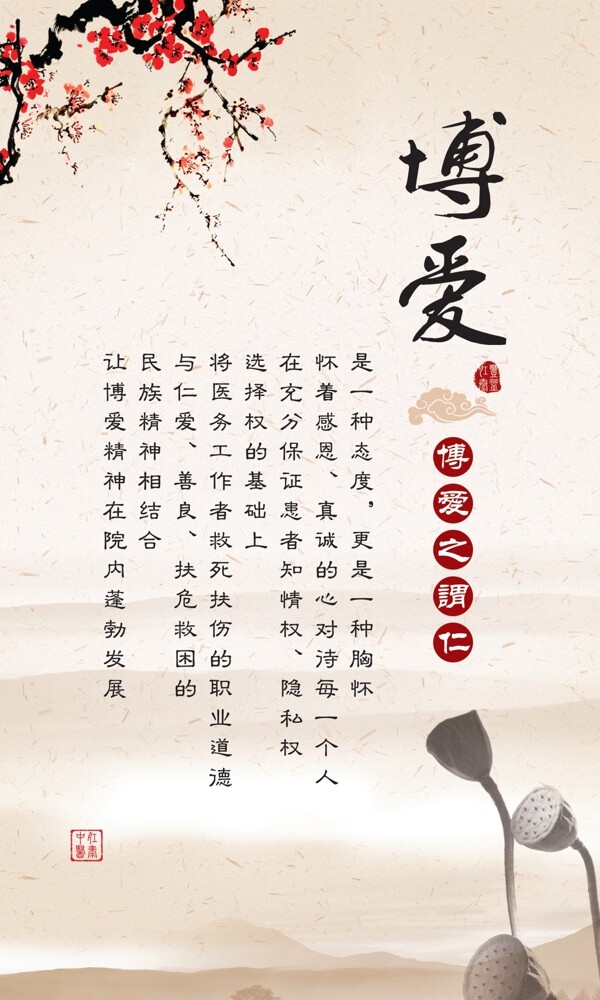 博爱
博愛之謂仁
是一种态度，更是一种胸怀
怀着感恩、真诚的心对待每一个人
在充分保证患者知情权、隐私权
选择权的基础上
将医务工作者救死扶伤的职业道德
与仁爱、善良、扶危救困的
民族精神相结合
让博爱精神在院内蓬勃发展